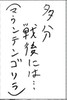 多分
戦後には…
(マウンテンゴリラ)